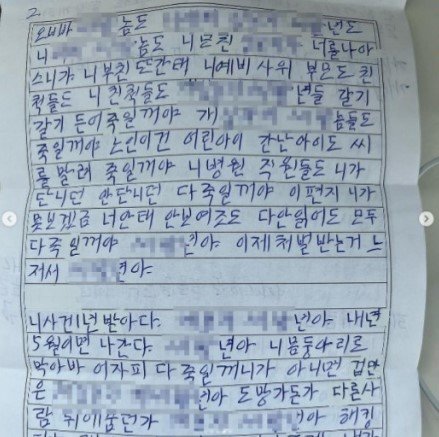 2.
오빠바 놈도 년도
니 놈도 니모친 너를나아
스니가 니부친 도간태 니예비 사위 부모도 친
척들도 니친척들도 년들 갈기
갈기 든어죽일꺼야 개 놈들도
죽일꺼야 소신이건 어린아이 간난아이도 씨
를 말려 죽일꺼야 니병원 직원들도 니가
다니던 안다니던 다죽일꺼야 이편지 니가
못보겠금 너안태 안보여조도 다안읽어도 모두
다죽일꺼야 년아 이제처벌받는거 느
저서 년아
니사건년받아다. 년아 내년
5월이면 나간다. 년아 니몸뚱아리로
막아바 어자피 다죽일꺼니가 아니면 겁만
은 년아 도망가든가 다른사
람 뒤에숨던가 년아